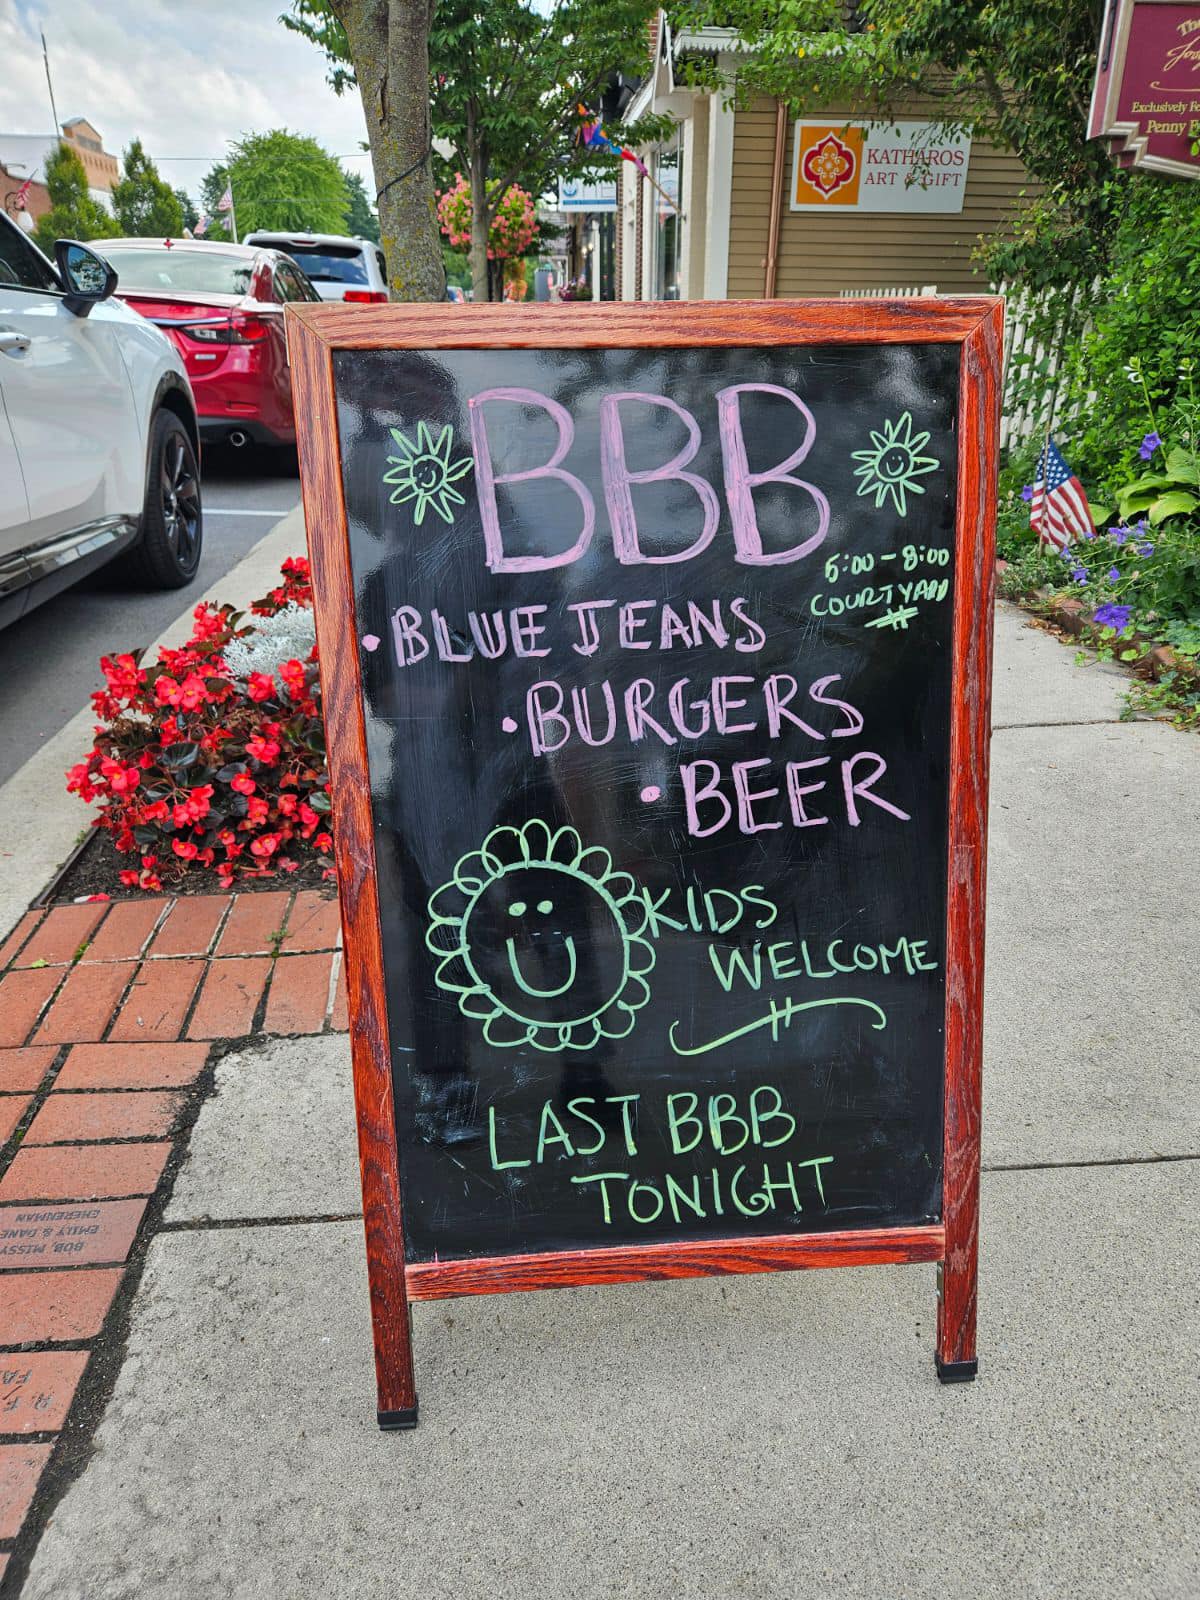 KATHAROS
ART & GIFT
Exclusively
Penny
BBB
5:00 - 8:00
COURTYARD
• BLUE JEANS
• BURGERS
• BEER
KIDS
WELCOME
LAST BBB
TONIGHT
BOB, MISSY
EMILY & DANE
EHERENMAN